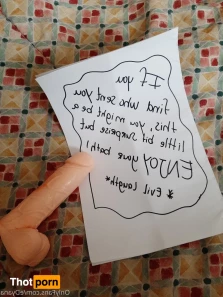 If you
find who sent you
this, you might be a
little bit surprise but
ENJOY your bath!
*Evil laugh*
Thot
porn
OnlyFans.com/evOyana